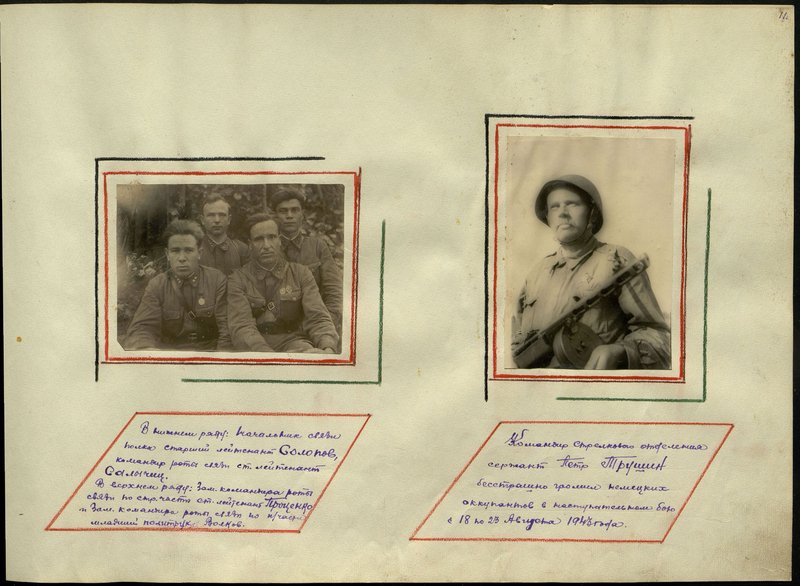 В нижнем ряду: Начальник связи
полка старший лейтенант Солопов,
командир роты связи ст. лейтенант
Салычиц.
В верхнем ряду: Зам. командира роты
связи по стр. части ст. лейтенант Проценко
и Зам. командира роты связи по п/части
младший политрук: Волков.
Командир стрелкового отделения
сержант Петр Трушин
бесстрашно громил немецких
оккупантов в наступательном бою
с 18 по 23 Августа 1943 года.